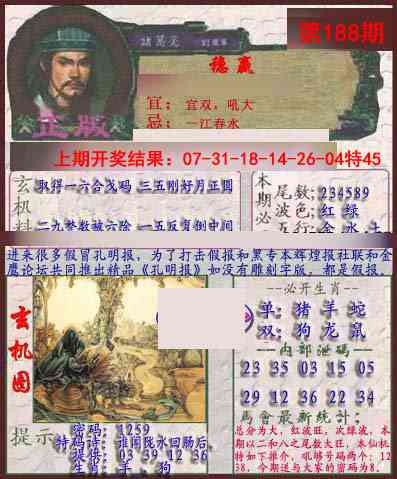 第188期
諸葛亮
穩贏
宜：宜双，吼大
忌：一江春水
正版
上期开奖结果：07-31-18-14-26-04特45
玄机料
取得一六合戏码 三五刚好月正圆
本期必
尾数:234589
波色:红 绿
五行:金 水 土
进来很多假冒孔明报，为了打击假报和黑专本辉煌报社联和金
鹰论坛共同推出精品《孔明报》如没有雕刻字版，都是假报。
玄机图
--必开生肖--
单:猪 羊 蛇
双:狗 龙 鼠
--内部泄码--
23 35 03 15 05
29 12 36 22 34
馬會最新統計:
总分为大，红波旺，次绿波，本
期以二和八之尾数大旺，本仙机
特如下推介，吼够号码两个：12
38，今期送与大家的密码为8。
提示
密码：1259
特码诗：谁闻陇水回肠后，
提供：03 39 12 36
生肖：羊、狗